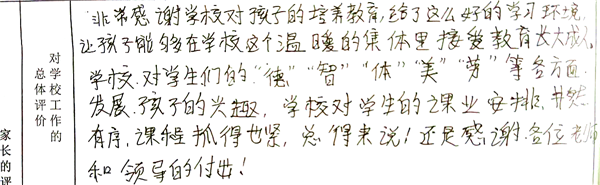 非常感谢学校对孩子的培养教育,给了这么好的学习环境,
让孩子能够在学校这个温暖的集体里接受教育长大成人
学校对学生们的“德”“智”“体”“美”“劳”等各方面
发展.孩子的兴趣,学校对学生的课业安排.井然
有序,课程抓得也紧,总得来说!还是感谢各位老师
和领导的付出!
对学校工作的
总体评价
家长的评